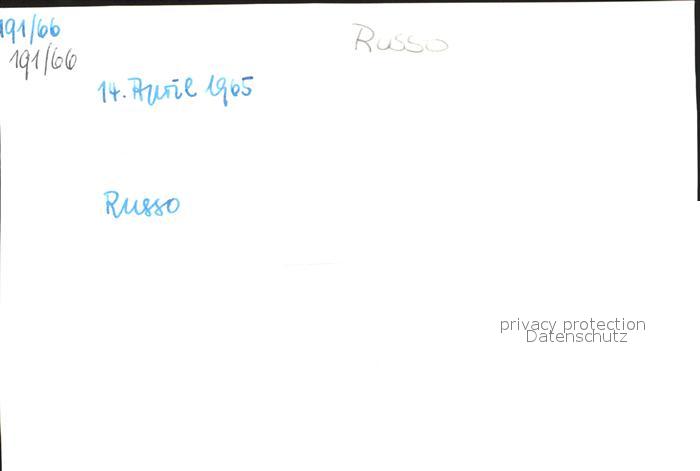 191/66
Russo
191/66
14. April 1965
Russo
privacy protection
Datenschutz